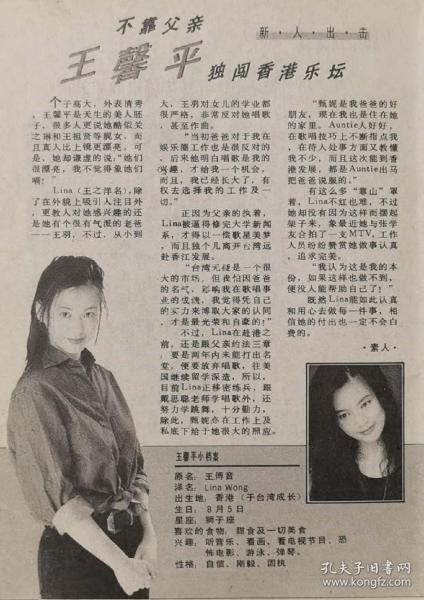 不靠父亲
新·人·出·击
王馨平 独闯香港乐坛
个子高大，外表清秀
，王馨平是天生的美人胚
子，很多人更说她酷似关
之琳和王祖贤等靓女。而
且真人比上镜更漂亮，可
是，她却谦虚的说："她们
很漂亮，我不觉得象她们
嘛！"
Lina（王之洋名），除
了在外貌上吸引人注目外
，更教人对她感兴趣的还
是她有个很有气派的老爸
——王羽，不过，从小到
大，王羽对女儿的学业都
很严格，非常反对她唱歌
，甚至作曲。
"当初爸爸对于我在
娱乐圈工作也是很反对的
，后来他明白唱歌是我的
兴趣，才给我一个机会，
而且，我已经长大了，有
权去选择我的工作及一
切。"
正因为父亲的执着，
Lina被逼得修完大学新闻
系，才得以一偿歌星美梦
，而且独个儿离开台湾远
赴香江发展。
"台湾无疑是一个很
大的市场，但我怕因爸爸
的名气，影响我在歌唱事
业的成绩，我觉得凭自己
的实力来博取大家的认同
，才是最光荣和自豪的！"
不过，Lina在赴港之
前，还是跟父亲约法三章
：要是两年内未能打出名
堂，便要放弃唱歌，往美
国继续留学深造，所以，
目前Lina正移密练兵，跟
戴思聪老师学唱歌外，还
努力学跳舞，十分勤力，
除此，甄妮亦在工作上及
私底下给于她很大的照应。
"甄妮是我爸爸的好
朋友，现在我也是住在她
的家里。Auntie人好好，
在歌唱技巧上不断指点我
，在待人处事方面又教懂
我不少，而且这次能到香
港发展，都是Auntie出马
把爸爸说服的。"
有这么多"靠山"罩
着，Lina不红也难，不过
她却没有因为这样而摆起
架子来，象最近她与张学
友合拍了一支MTV，工作
人员纷纷赞赏她做事认真
，追求完美。
"我认为这是我的本
份，如果这样也做不到，
便没人能帮助自己了！"
既然Lina能如此认真
和用心去做每一件事，相
信她的付出也一定不会白
费的。
·素人·
王馨平小档案
原名：王傅音
洋名：Lina Wong
出生地：香港（于台湾成长）
生日：8月5日
星座：狮子座
喜欢的食物：甜食及一切美食
兴趣：听音乐、看画、看电视节目、恐
怖电影、游泳、弹琴。
性格：自信、刚毅、固执
孔夫子旧书网
www.kongfz.com